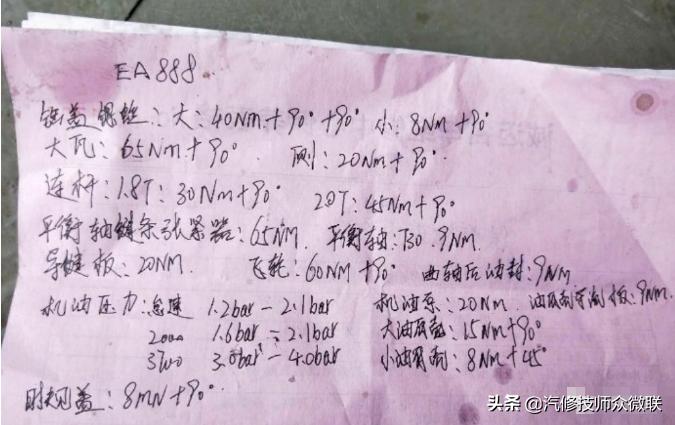 EA888
缸盖螺栓:大:40Nm+90°+90° 小:8Nm+90°
大瓦:65Nm+90° 侧:20Nm+90°
连杆:1.8T:30Nm+90° 2.0T:45Nm+90°
平衡轴链条张紧器:65NM 平衡轴:T30 9NM
导链板:20NM 飞轮:60NM+90° 曲轴后油封:9NM
机油压力:怠速 1.2bar-2.1bar 机油泵:20NM 油底 板:9NM
2000 1.6bar-2.1bar 大油底壳:15Nm+90°
3700 3.0bar-4.0bar 小油 :8Nm+45°
时规盖:8mN+90°
头条 @汽修技师众微联